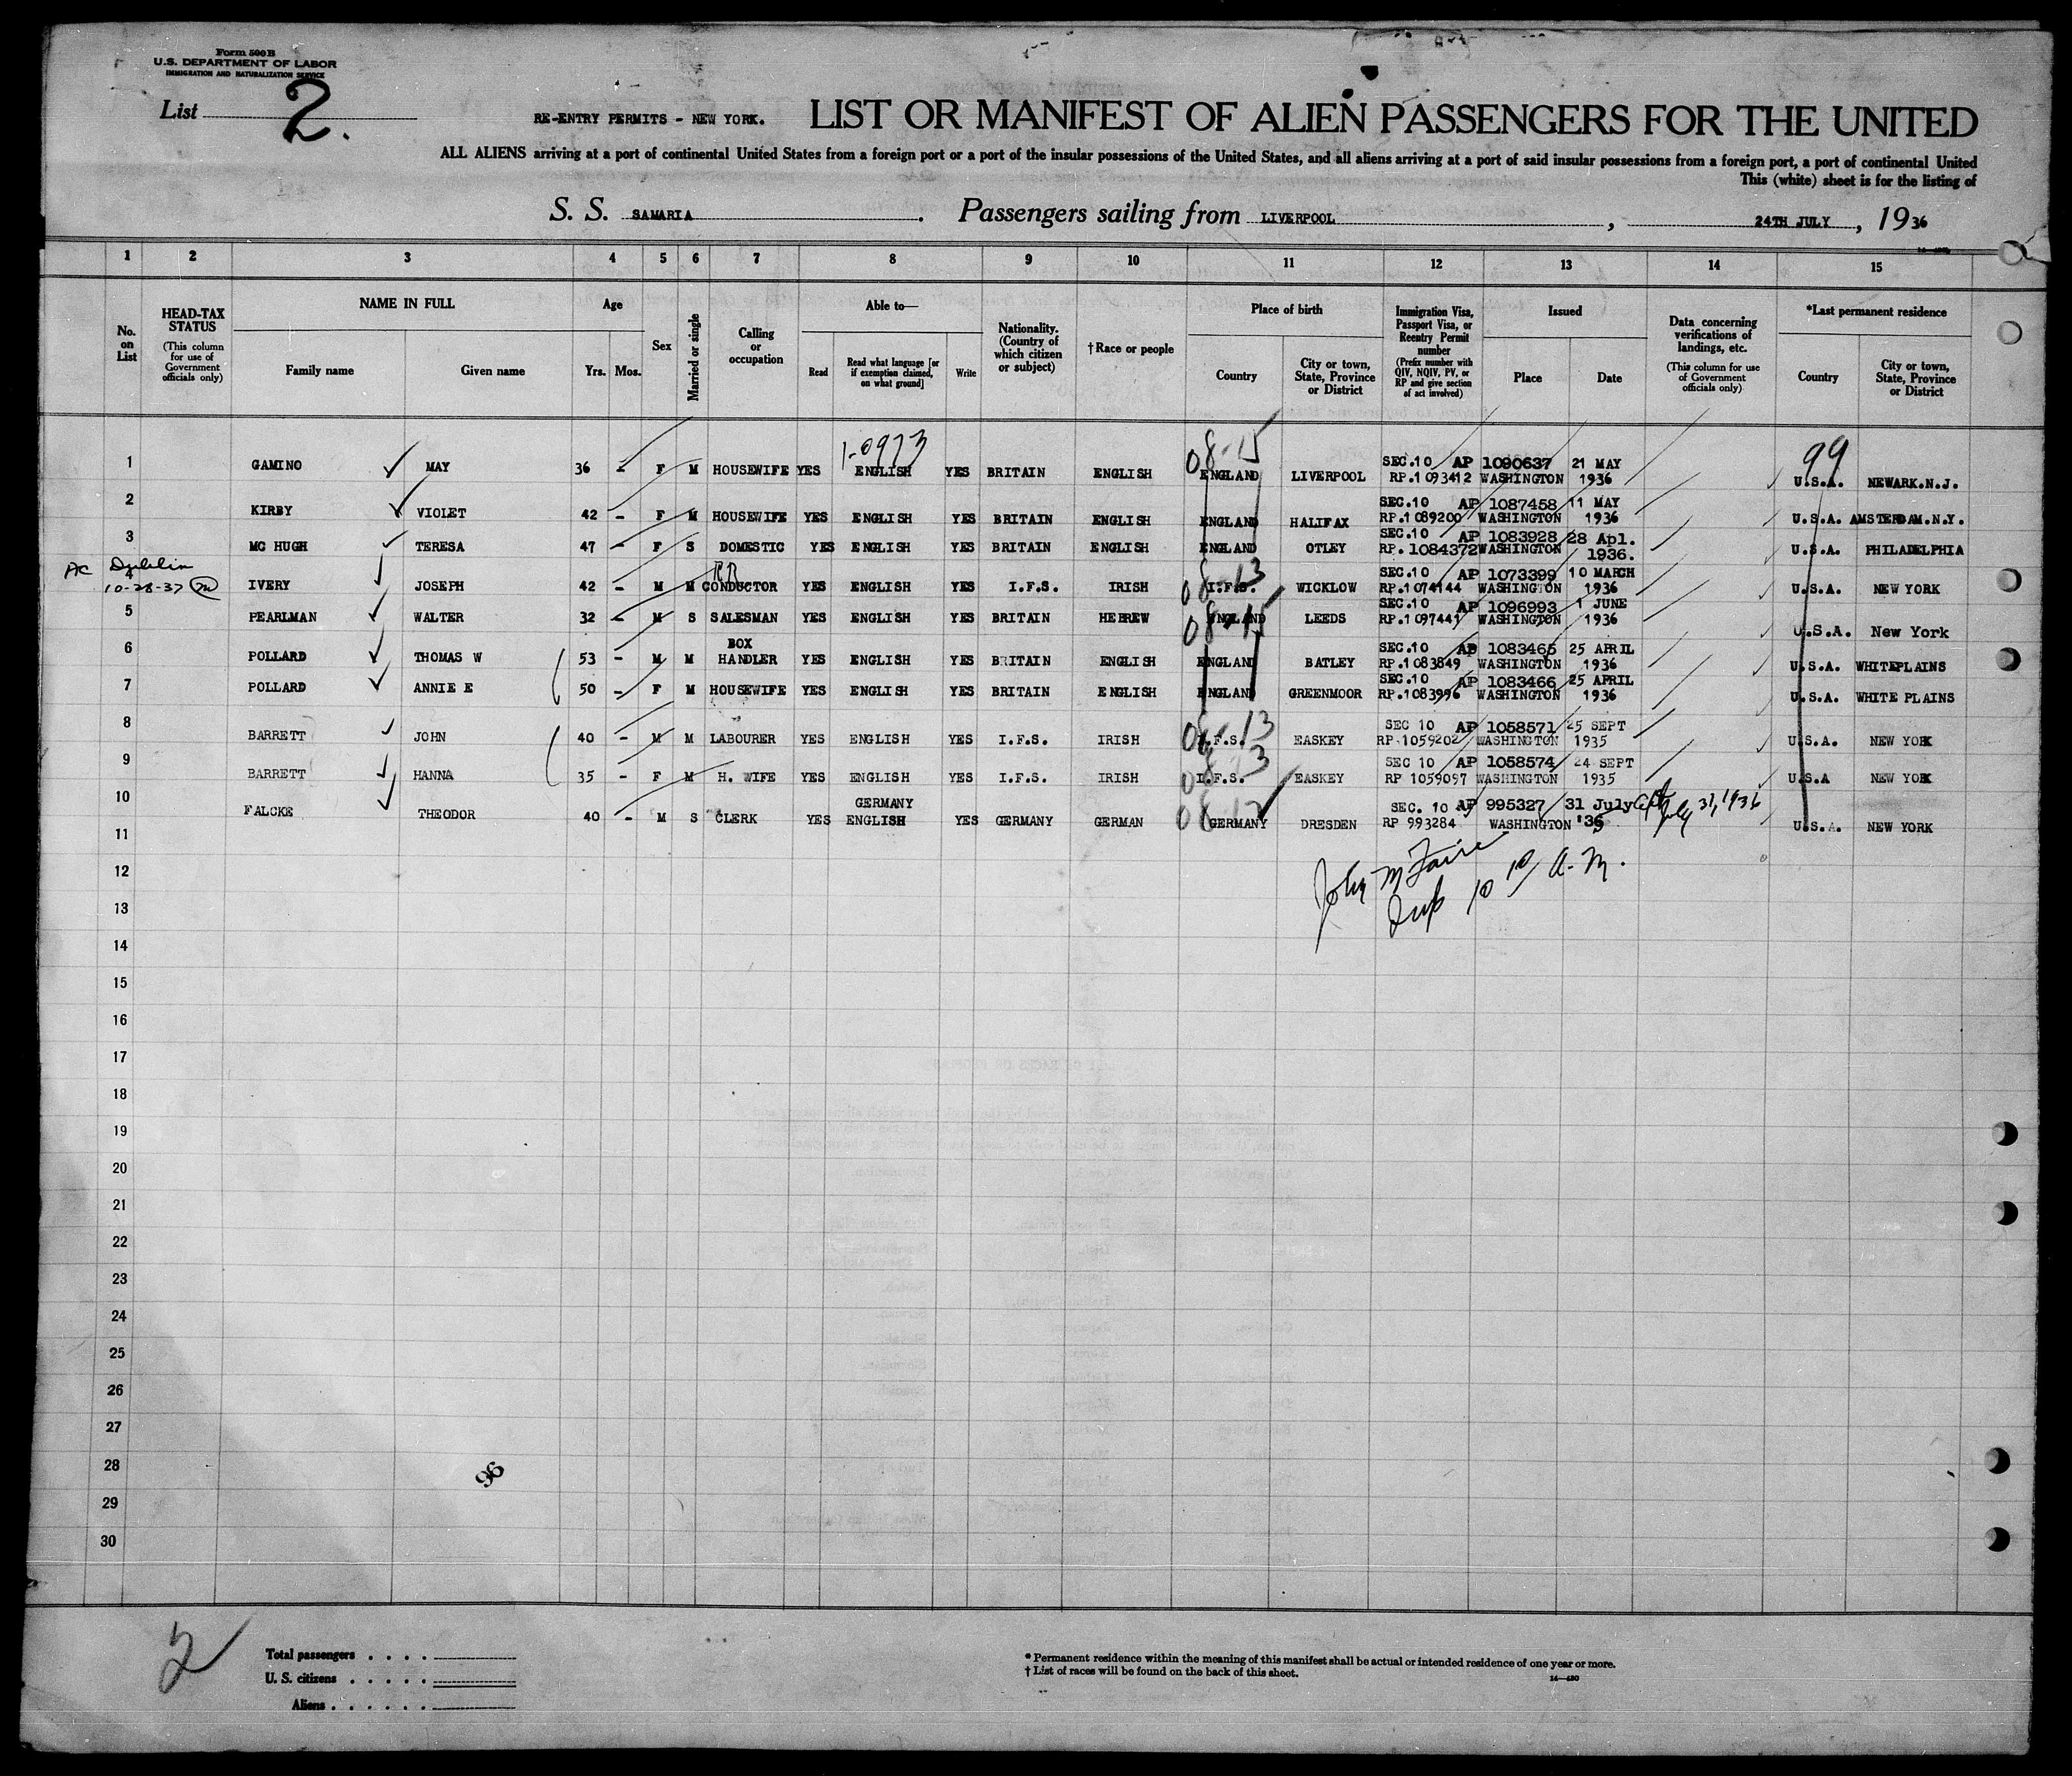 Form 500 B
U.S. DEPARTMENT OF LABOR
IMMIGRATION AND NATURALIZATION SERVICE
List 2.
RE-ENTRY PERMITS - NEW YORK. LIST OR MANIFEST OF ALIEN PASSENGERS FOR THE UNITED
ALL ALIENS arriving at a port of continental United States from a foreign port or a port of the insular possessions of the United States, and all aliens arriving at a port of said insular possessions from a foreign port, a port of continental United
This (white) sheet is for the listing of
S. S. SAMARIA . Passengers sailing from LIVERPOOL , 24TH JULY , 1936
1 2 3 4 5 6 7 8 9 10 11 12 13 14 15
No. on List
HEAD-TAX STATUS (This column for use of Government officials only)
NAME IN FULL Family name Given name
Age Yrs. Mos.
Sex
Married or single
Calling or occupation
Able to— Read Read what language [or if exemption claimed, on what ground] Write
Nationality. (Country of which citizen or subject)
†Race or people
Place of birth Country City or town, State, Province or District
Immigration Visa, Passport Visa, or Reentry Permit number (Prefix number with QIV, NQIV, PV, or RP and give section of act involved)
Issued Place Date
Data concerning verifications of landings, etc. (This column for use of Government officials only)
*Last permanent residence Country City or town, State, Province or District
1-0973 08-15 99
1 GAMINO MAY 36 - F M HOUSEWIFE YES ENGLISH YES BRITAIN ENGLISH ENGLAND LIVERPOOL SEC.10 AP 1090637 RP.1093412 WASHINGTON 21 MAY 1936 U.S.A. NEWARK.N.J.
2 KIRBY VIOLET 42 - F M HOUSEWIFE YES ENGLISH YES BRITAIN ENGLISH ENGLAND HALIFAX SEC.10 AP 1087458 RP.1089200 WASHINGTON 11 MAY 1936 U.S.A. AMSTERDAM.N.Y.
3 MC HUGH TERESA 47 - F S DOMESTIC YES ENGLISH YES BRITAIN ENGLISH ENGLAND OTLEY SEC.10 AP 1083928 RP.1084372 WASHINGTON 28 Apl. 1936. U.S.A. PHILADELPHIA
AC Dublin
10-28-37
RR 08-13
4 IVERY JOSEPH 42 - M M CONDUCTOR YES ENGLISH YES I.F.S. IRISH I.F.S. WICKLOW SEC.10 AP 1073399 RP.1074144 WASHINGTON 10 MARCH 1936 U.S.A. NEW YORK
5 PEARLMAN WALTER 32 - M S SALESMAN YES ENGLISH YES BRITAIN HEBREW ENGLAND 08-15 LEEDS SEC.10 AP 1096993 RP.1097441 WASHINGTON 1 JUNE 1936 U.S.A. New York
6 POLLARD THOMAS W 53 - M M BOX HANDLER YES ENGLISH YES BRITAIN ENGLISH ENGLAND BATLEY SEC.10 AP 1083465 RP.1083849 WASHINGTON 25 APRIL 1936 U.S.A. WHITEPLAINS
7 POLLARD ANNIE E 50 - F M HOUSEWIFE YES ENGLISH YES BRITAIN ENGLISH ENGLAND GREENMOOR SEC.10 AP 1083466 RP.1083996 WASHINGTON 25 APRIL 1936 U.S.A. WHITE PLAINS
8 BARRETT JOHN 40 - M M LABOURER YES ENGLISH YES I.F.S. IRISH I.F.S. 08-13 EASKEY SEC 10 AP 1058571 RP 1059202 WASHINGTON 25 SEPT 1935 U.S.A. NEW YORK
9 BARRETT HANNA 35 - F M H. WIFE YES ENGLISH YES I.F.S. IRISH I.F.S. 08-13 EASKEY SEC 10 AP 1058574 RP 1059097 WASHINGTON 24 SEPT 1935 U.S.A NEW YORK
10 FALCKE THEODOR 40 - M S CLERK YES GERMANY ENGLISH YES GERMANY GERMAN GERMANY DRESDEN SEC. 10 AP 995327 RP 993284 WASHINGTON 31 July '36 July 31, 1936 U.S.A. NEW YORK
11
12
13
14
15
16
17
18
19
20
21
22
23
24
25
26
27
28
29
30
10 10/ A.M.
96
2
Total passengers . . . .
U. S. citizens . . . . .
Aliens . . . . . .
* Permanent residence within the meaning of this manifest shall be actual or intended residence of one year or more.
† List of races will be found on the back of this sheet.
14—430